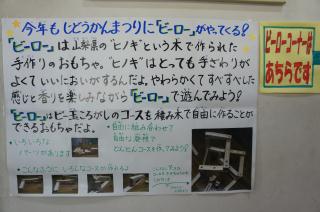 今年もじどうかんまつりに「ビーロー」がやってくる？
「ビーロー」は山梨県の"ヒノキ"という木で作られた
手作りのおもちゃ。"ヒノキ"はとっても手ざわりが
よくていいにおいがするんだよ。やわらかくてすべすべした
感じと香りを楽しみながら「ビーロー」で遊んでみよう？
「ビーロー」はビー玉ころがしのコースを積み木で自由に作ることが
できるおもちゃだよ。
・いろいろな
パーツがあります
・自由に組み合わせて
自由な発想で
どんどんコースを作ってみよう？
・こんなふうに いろんなコースが作れるよ
ビーローコーナーは
あちらです